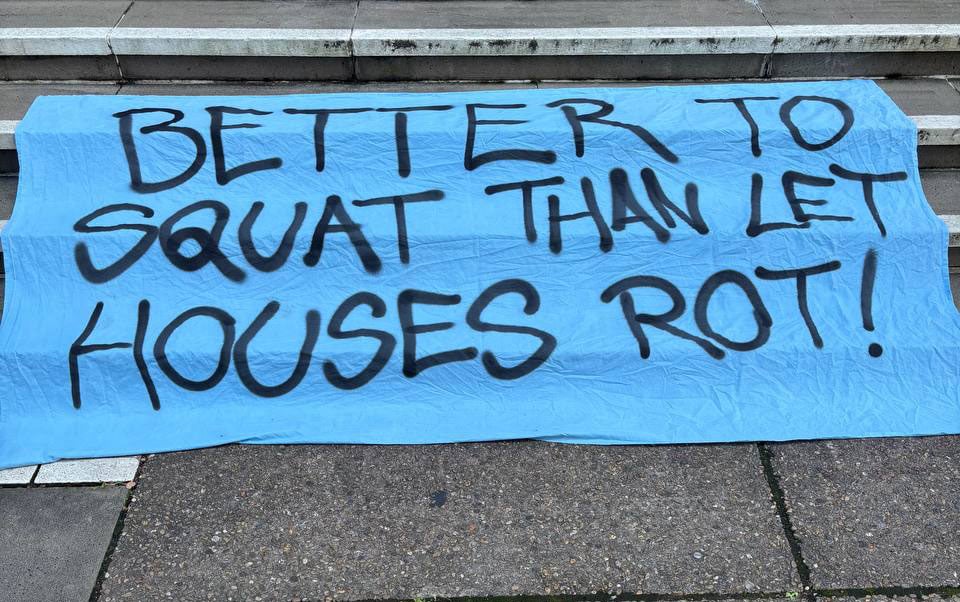 BETTER TO
SQUAT THAN LET
HOUSES ROT!